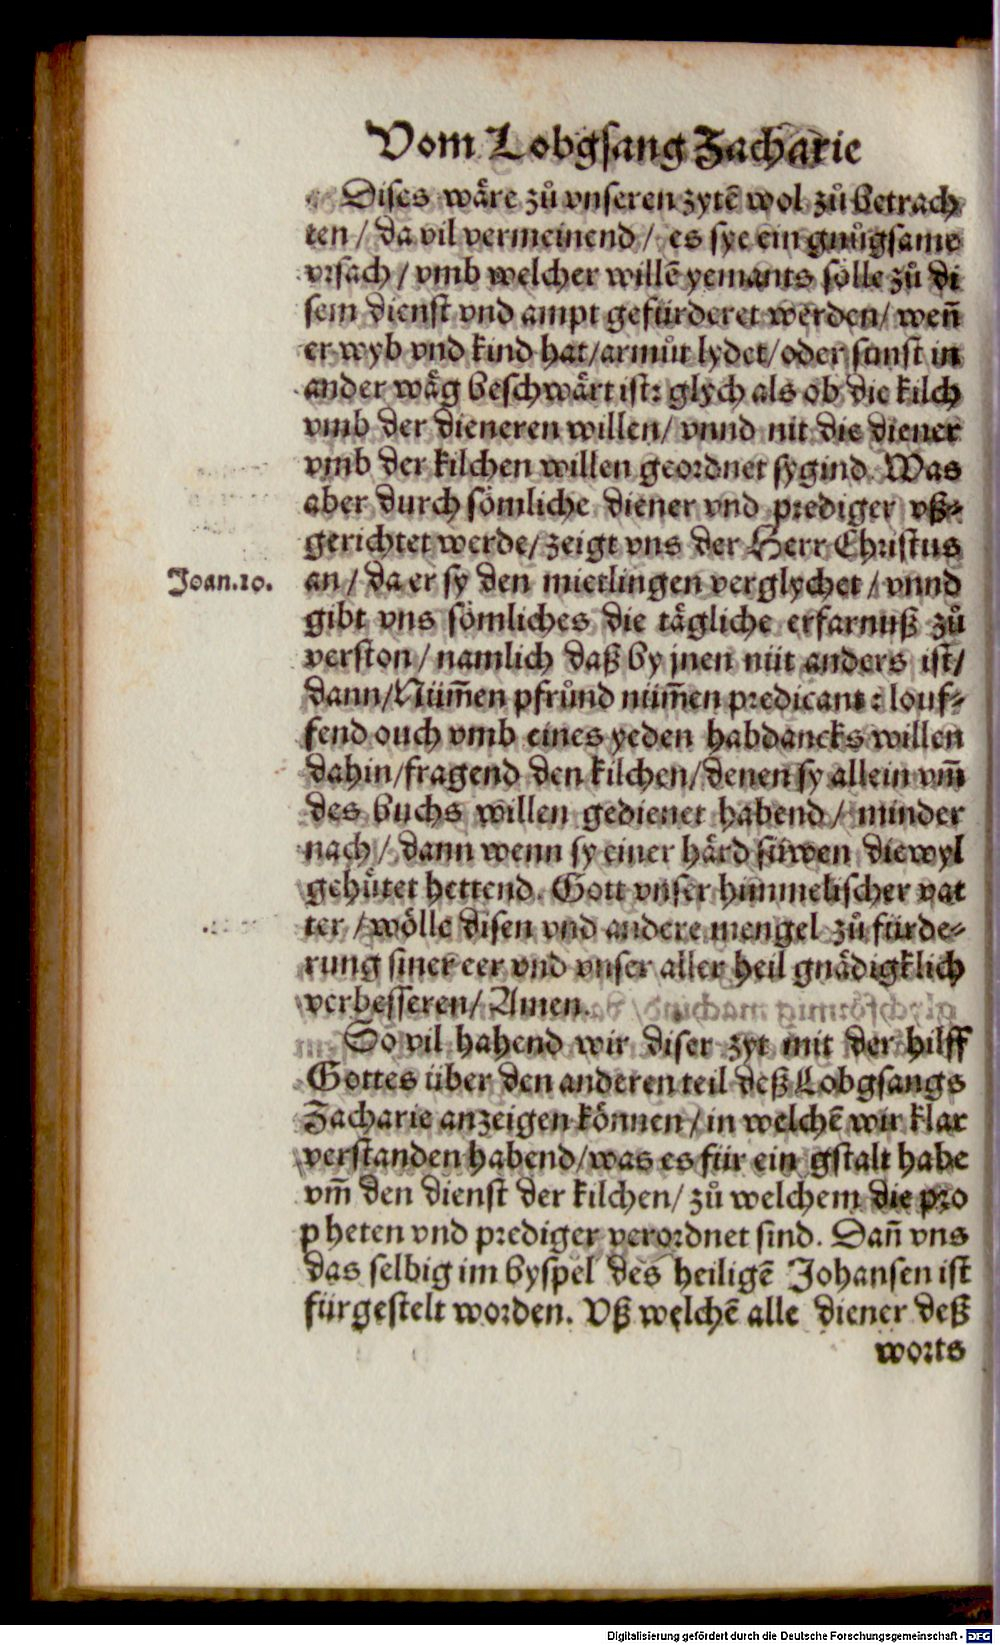 Vom Lobgsang Zacharie
Dises wåre zů vnseren zytē wol zů betrach
ten / da vil vermeinend / es sye ein gnůgsame
vrsach / vmb welcher willē yemants sölle zů di
sem dienst vnd ampt gefürderet werden / weñ
er wyb vnd kind hat / armůt lydet / oder sunst in
ander wåg beschwårt ist: glych als ob die kilch
vmb der dieneren willen / vnnd nit die diener
vmb der kilchen willen geordnet sygind. Was
aber durch sömliche diener vnd prediger vß⸗
gerichtet werde / zeigt vns der Herr Christus
Joan.10.
an / da er sy den mietlingen verglychet / vnnd
gibt vns sömliches die tågliche erfarnuß zů
verston / namlich daß by jnen nüt anders ist /
dann / Nüm̃en pfrůnd nüm̃en predicant: louf⸗
fend ouch vmb eines yeden habdancks willen
dahin / fragend den kilchen / denen sy allein vm̃
des buchs willen gedienet habend / minder
nach / dann wenn sy einer hård süwen diewyl
gehůtet hettend. Gott vnser himmelischer vat
ter / wölle disen vnd andere mengel zů fürde⸗
rung siner eer vnd vnser aller heil gnådigklich
verbesseren / Amen.
So vil hahend wir diser zyt mit der hilff
Gottes über den anderen teil deß Lobgsangs
Zacharie anzeigen können / in welchē wir klar
verstanden habend / was es für ein gstalt habe
vm̃ den dienst der kilchen / zů welchem die pro
pheten vnd prediger verordnet sind. Dañ vns
das selbig im byspel des heiligē Johansen ist
fürgestelt worden. Vß welchē alle diener deß
worts
Digitalisierung gefördert durch die Deutsche Forschungsgemeinschaft - DFG